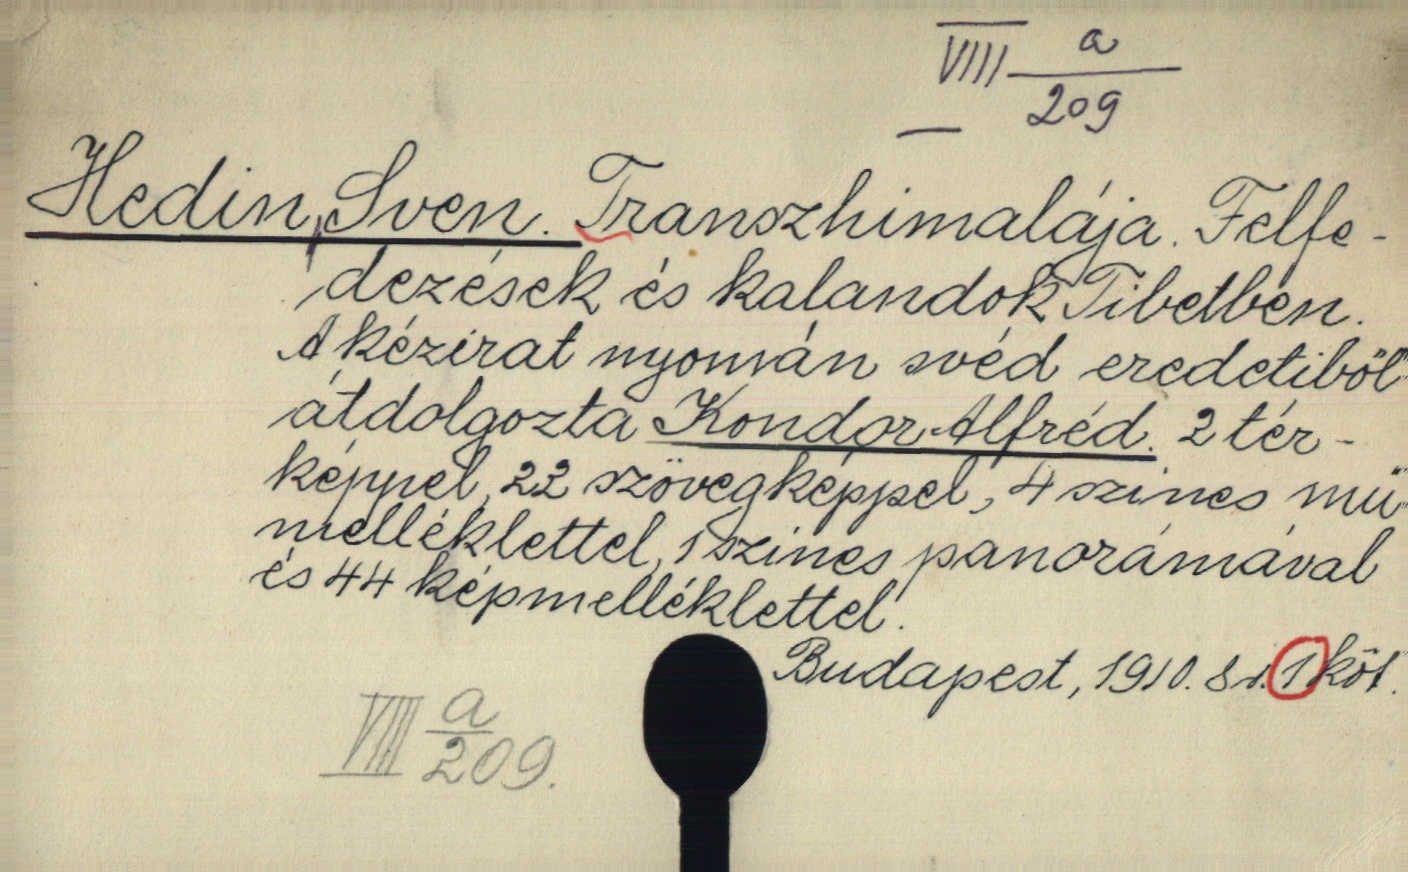 VIII a
209
Hedin, Sven. Transzhimalája. Felfe-
dezések és kalandok Tibetben.
A kézirat nyomán svéd eredetiből
átdolgozta Kondor Alfréd. 2 tér-
képpel, 22 szövegképpel, 4 szines mű-
melléklettel, 1 szines panorámával
és 44 képmelléklettel.
Budapest, 1910. 8 r. 1 köt.
VIII a
209.